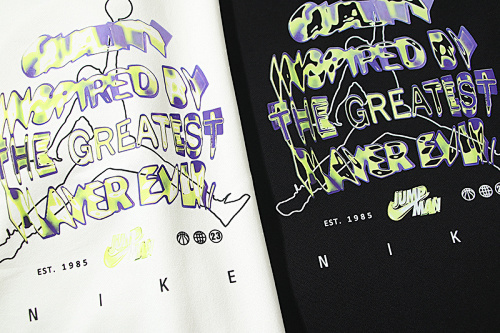 QUALITY
INSPIRED BY
THE GREATEST
PLAYER EVER
EST. 1985
23
N I K E
QUALITY
INSPIRED BY
THE GREATEST
PLAYER EVER
EST. 1985
JUMP
MAN
23
N I K